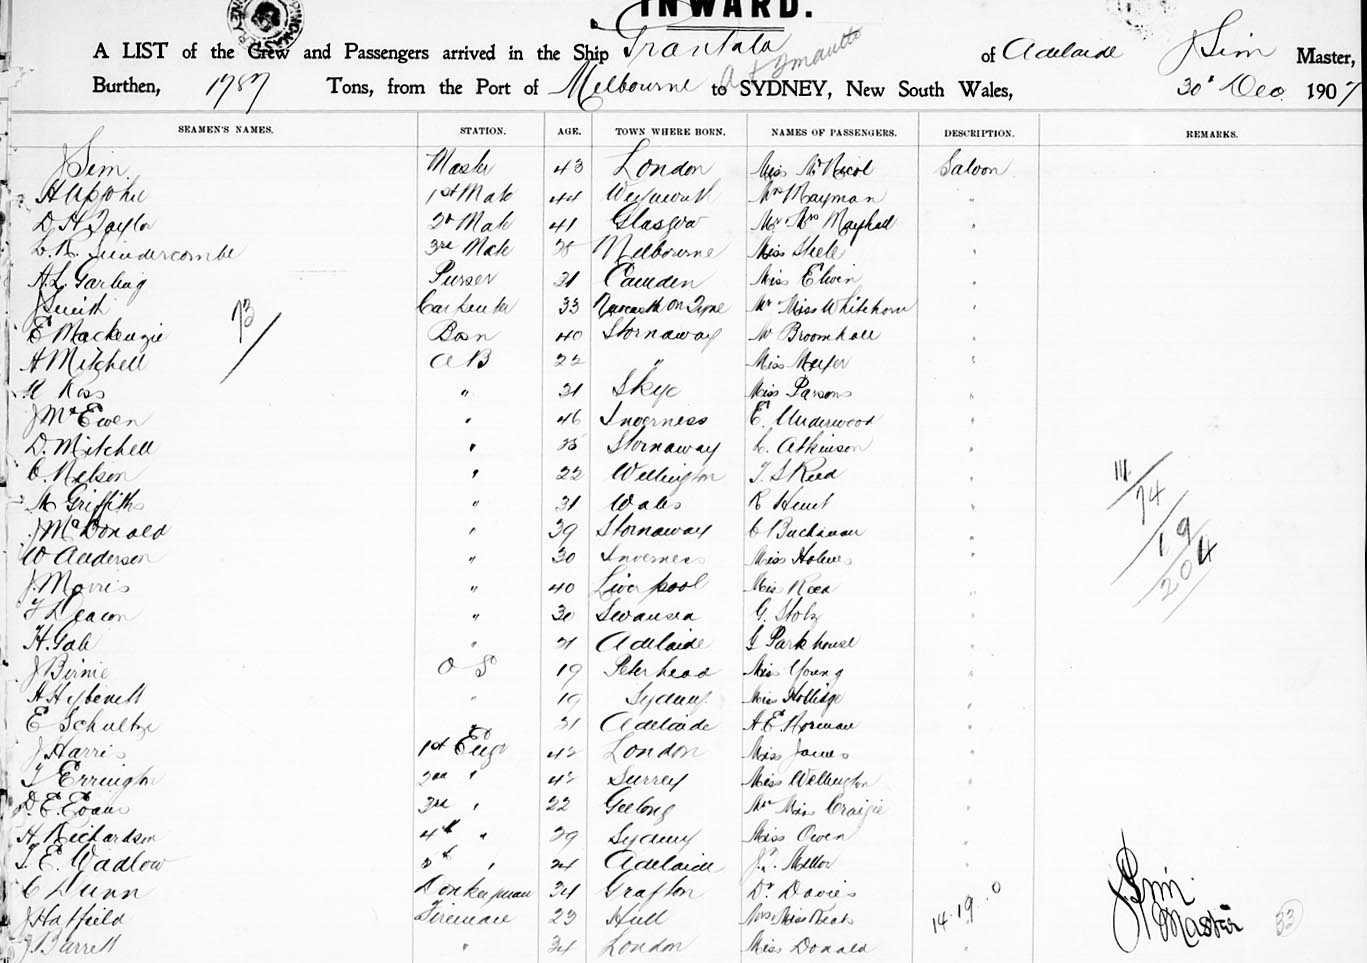 INWARD.
A LIST of the Crew and Passengers arrived in the Ship Grantala of Adelaide J Sim Master,
Burthen, 1787 Tons, from the Port of Melbourne to SYDNEY, New South Wales, 30th Dec. 1907
SEAMEN'S NAMES. STATION. AGE. TOWN WHERE BORN. NAMES OF PASSENGERS. DESCRIPTION. REMARKS.
J Sim Master 43 London Miss McNicol Saloon
H Upjohn 1st Mate 44 Weymouth Mrs Mayman "
D. H. Taylor 2d Mate 41 Glasgow Mr Mrs Mayhall "
Lundercombe 3rd Mate Melbourne Miss Steele "
A. L. Garling Purser 31 Camden Miss Elwin "
J Smith Carpenter 33 Newcastle on Tyne Mr Miss Whitehorn "
73
E Mackenzie Bosn 40 Stornaway Mr Broomhall "
A Mitchell AB 22 " Miss "
M Ross " 31 Skye Miss Parsons "
J McEwen " 46 Inverness E. Underwood "
D. Mitchell " Stornaway L. Atkinson "
C. Nelson " 22 Wellington T. S Reed "
111
74
M Griffiths " 31 Wales R Hunt "
J McDonald " 39 Stornaway C Buchanan "
19
W Anderson " 30 Inverness Miss Holmes "
204
J. Morris " 40 Liverpool Miss Reed "
T Deacon " 30 Swansea G. Stolz "
H. Gale " 21 Adelaide G Parkhouse "
J Birnie O S 19 Peterhead Miss Young "
A " 19 Sydney Miss Hollidge "
E Schultze 31 Adelaide A E Norman "
J Harris 1st Eng 42 London Miss James "
T Errington 2nd " 42 Surrey Miss Wellington "
D. E. Evans 3rd " 22 Geelong Mr Miss Craigie "
H. Richardson 4th " 29 Sydney Miss Owen "
T. E. Wadlow 5th " 24 Adelaide J. Mellor "
C Dunn Donkeyman 34 Grafton Dr Davies
J Sim
Master
J Hatfield Fireman 23 Hull Mrs Miss 14.19.0
33
J. Barrett " 34 London Miss Donald "